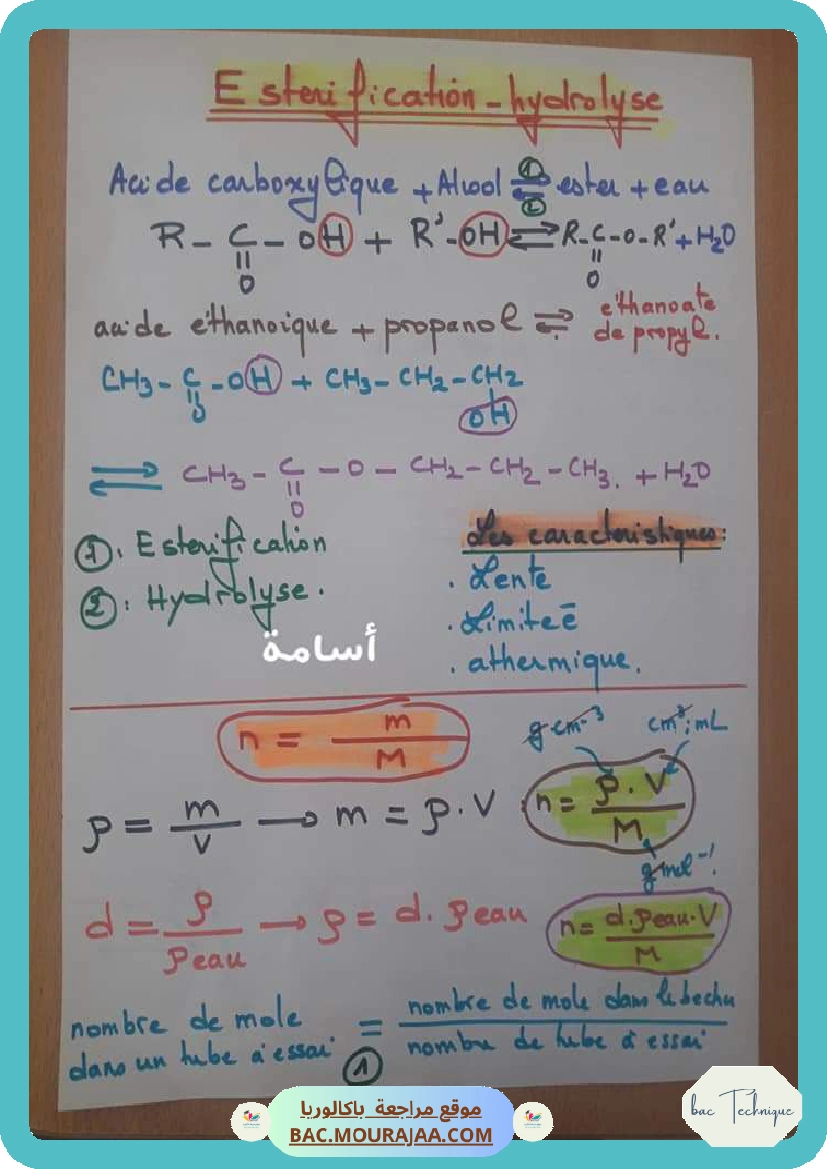 Esterification - hydrolyse
Acide carboxylique + Alcool ⇌ ester + eau
1
2
R - C - OH + R' - OH ⇌ R - C - O - R' + H2O
|| ||
O O
acide éthanoique + propanol ⇌ éthanoate
de propyl.
CH3 - C - OH + CH3 - CH2 - CH2
||
O OH
⇌ CH3 - C - O - CH2 - CH2 - CH3. + H2O
||
O
1: Esterification
2: Hydrolyse.
Les caractéristiques:
. Lente
. Limiteé
. athermique.
أسامة
n = m / M
g.cm⁻³ cm³; mL
ρ = m / V → m = ρ . V
n = ρ . V / M
g.mol⁻¹
d = ρ / ρeau → ρ = d . ρeau
n = d . ρeau . V / M
nombre de mole dans un tube à essai = nombre de mole dans le bechu / nombre de tube à essai
1
موقع مراجعة باكالوريا
BAC.MOURAJAA.COM
bac Technique